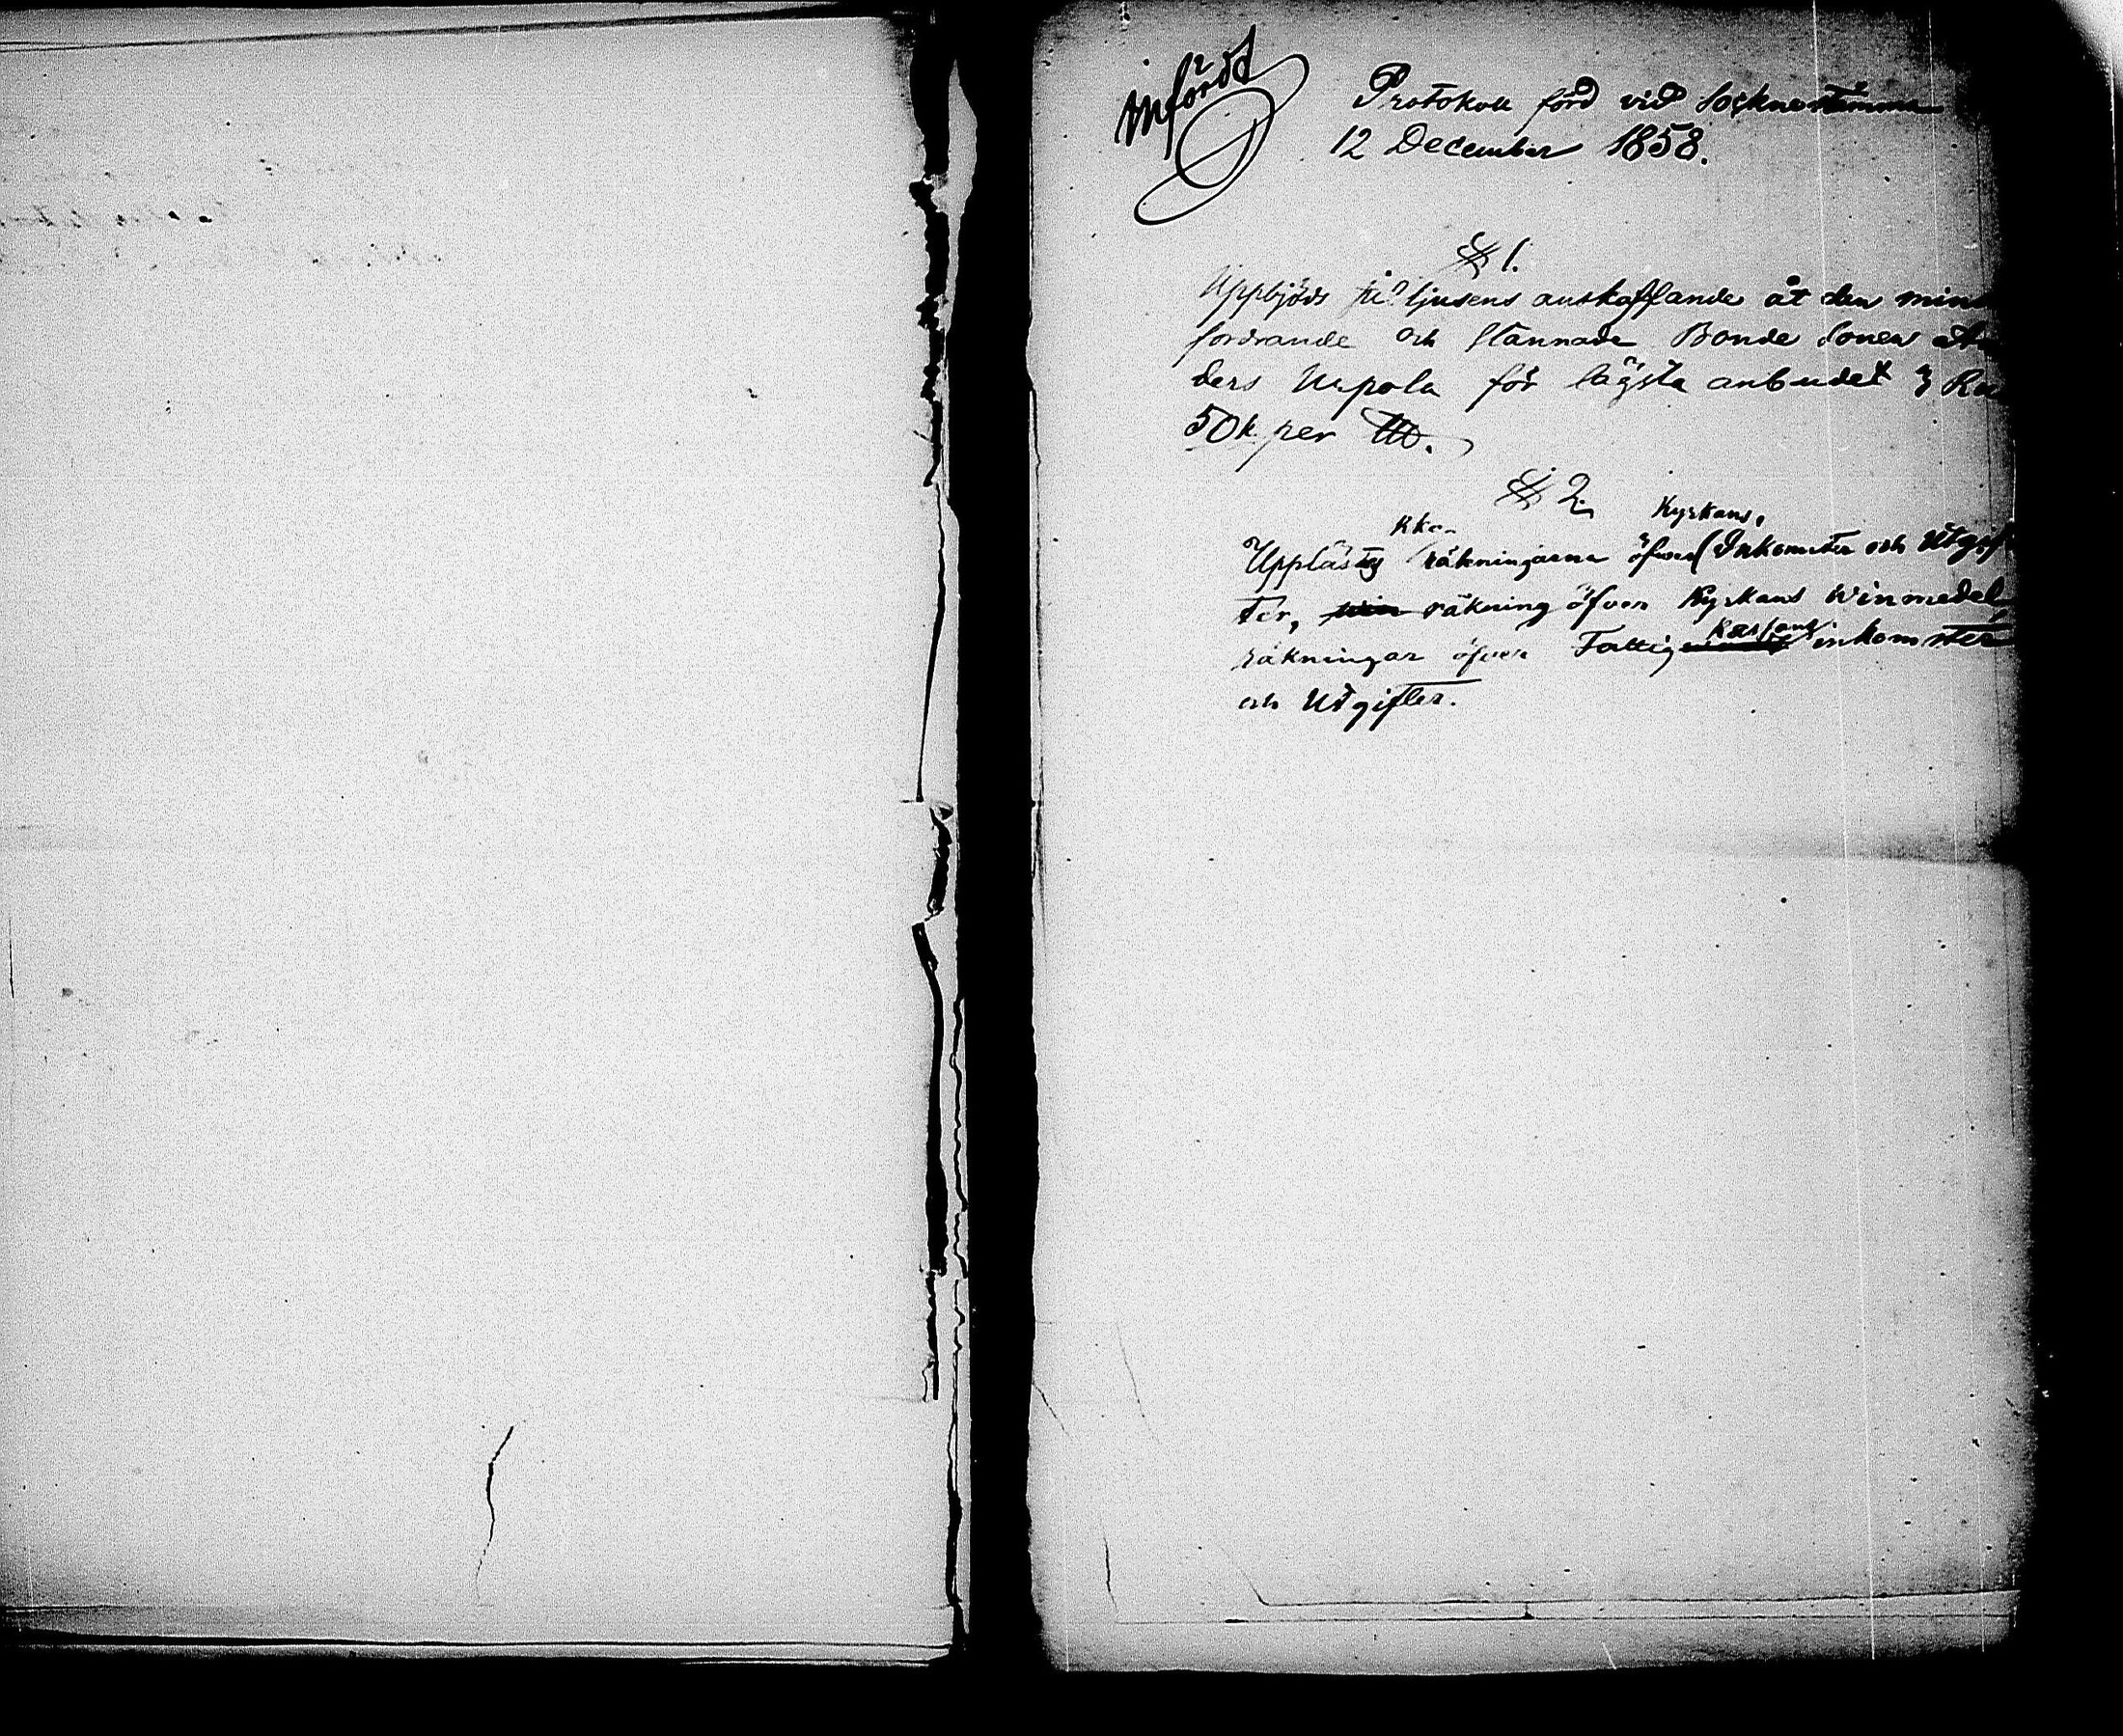 införd
Protokoll förd vid Socknestämma
12 December 1858.
§ 1.
Uppbjöds ljusens anskaffande åt den min
fordrande och stannade Bonde Sonen An
ders Uupola för lägsta anbudet 3 Ru
50 k. per ℔.
§ 2.
Kyrkans,
Upplästes räkningarna öfver Inkomster och Utgif
ter, räkning öfver Kyrkans Winmedel,
Kassans
räkningar öfver Fattig inkomster
och Utgifter.